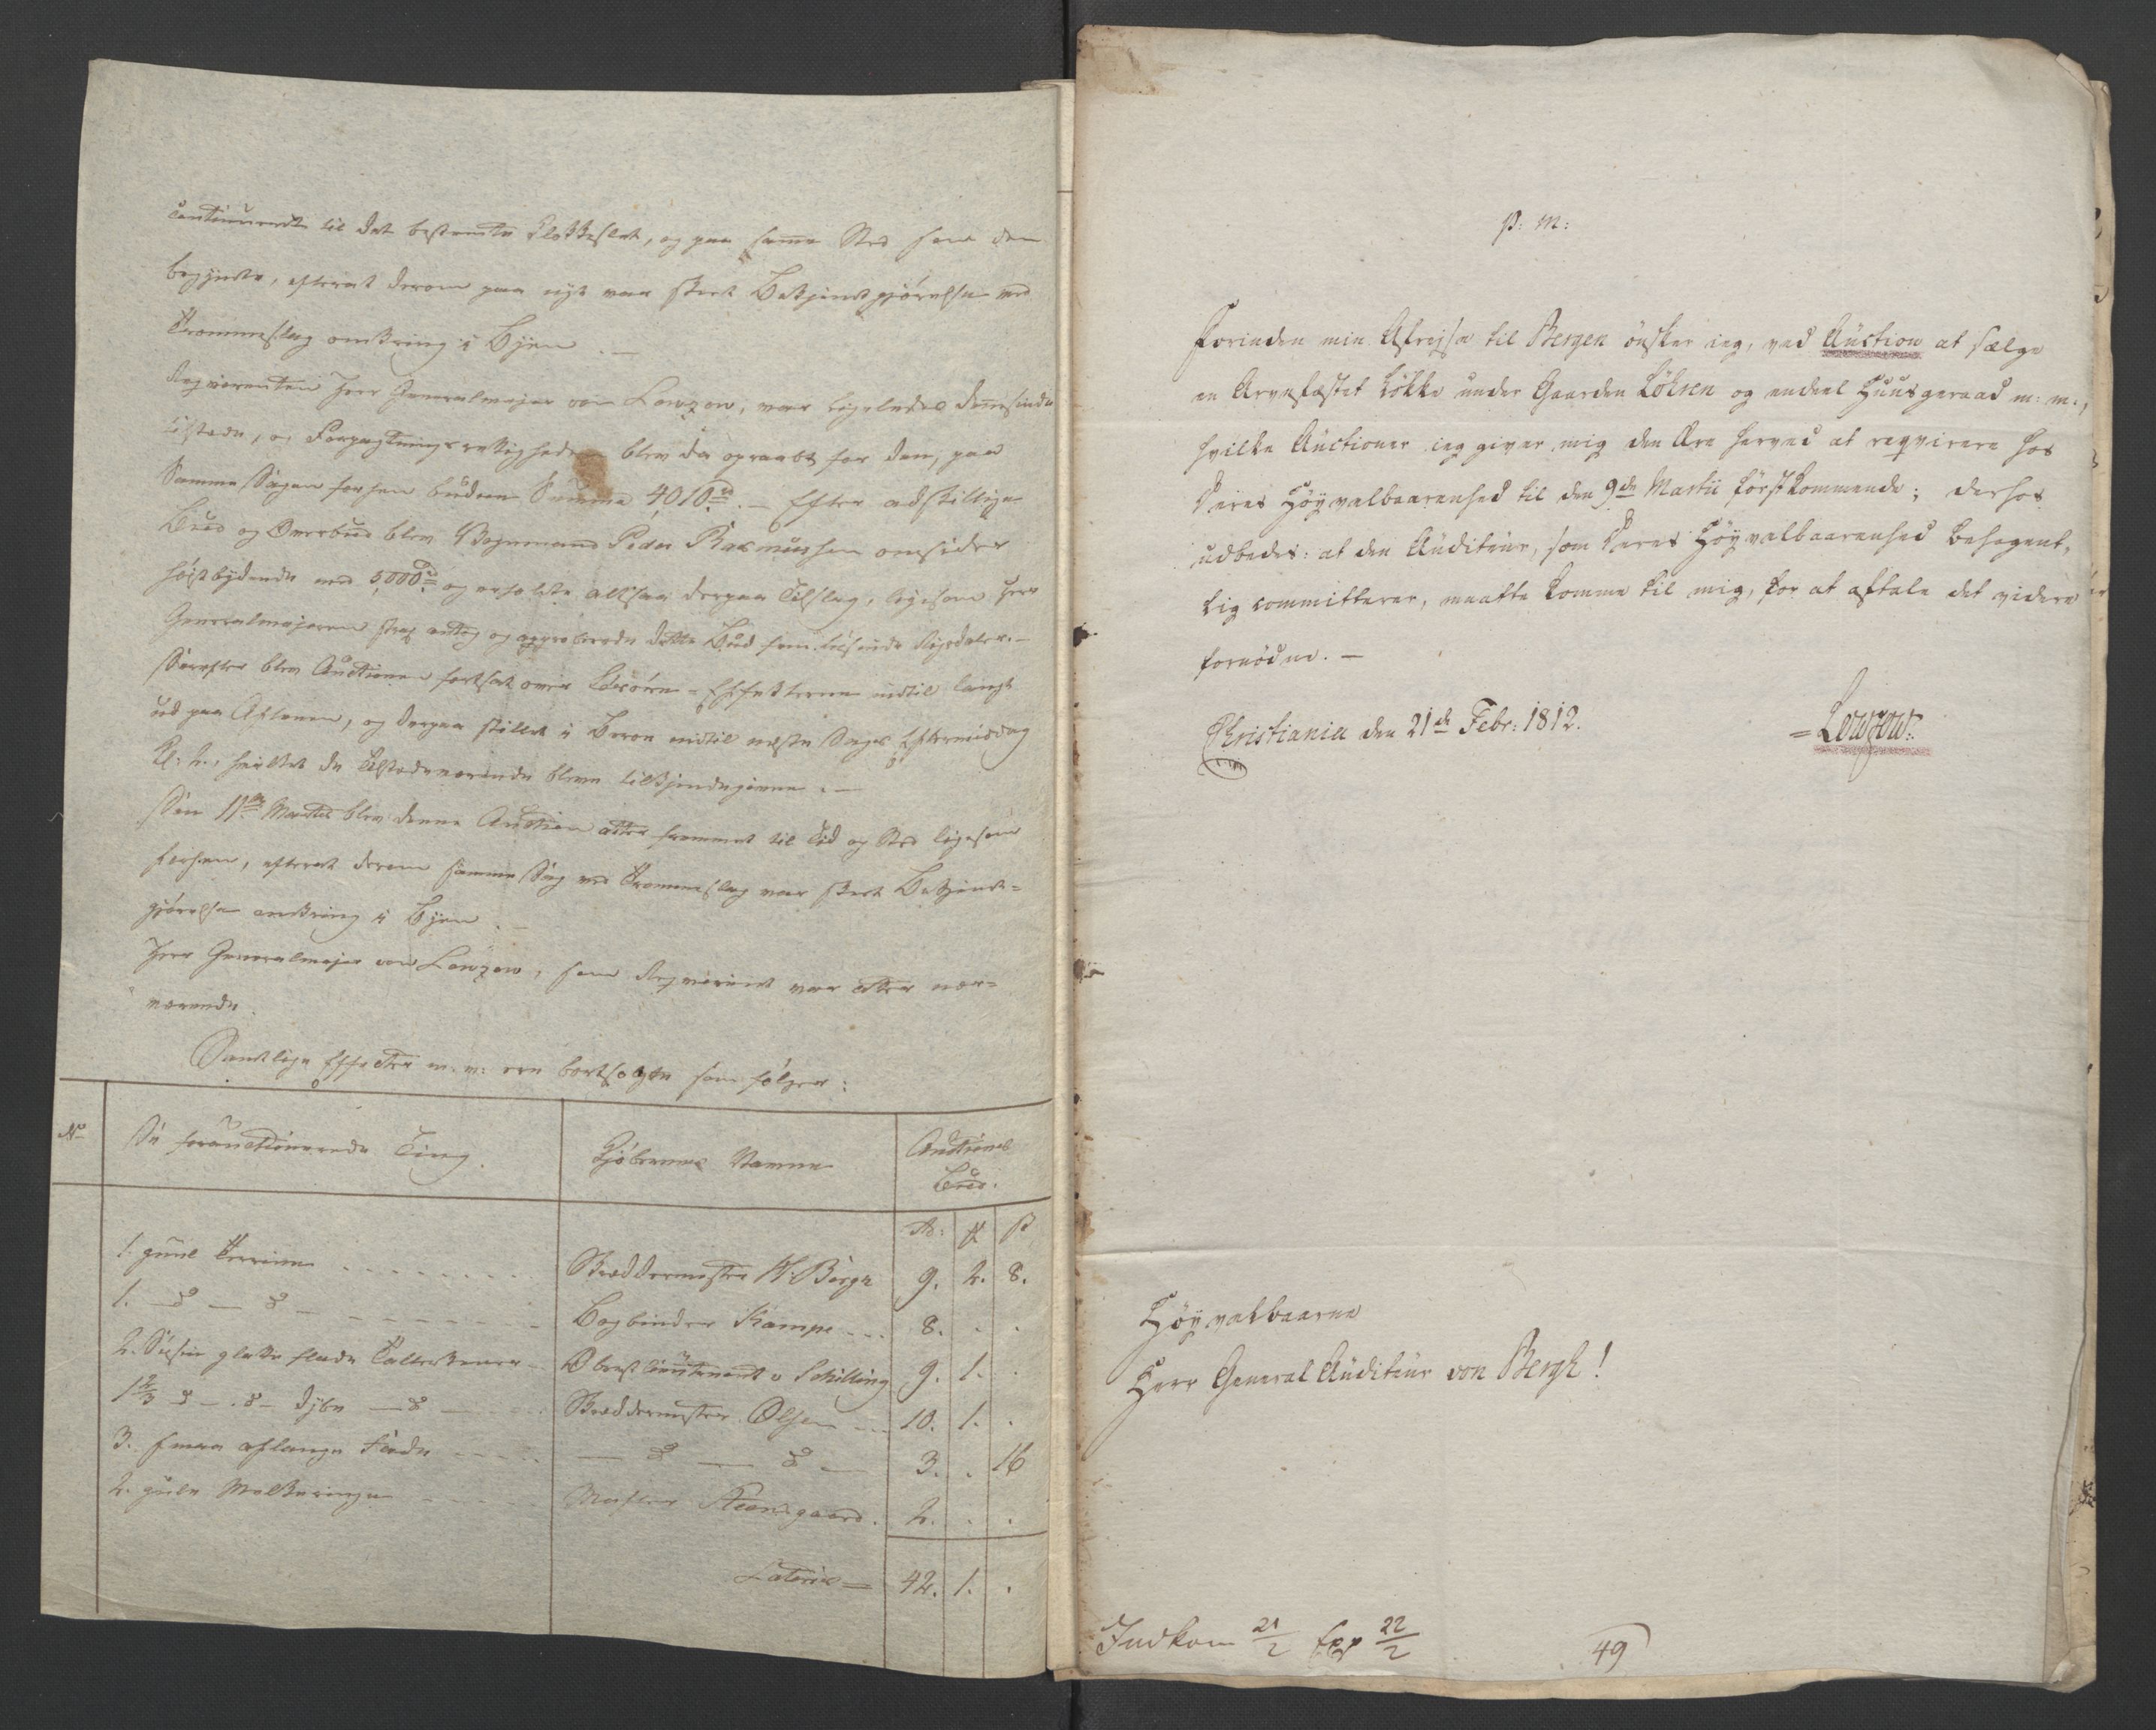 Continueret til det bestemte Klokkeslet, og paa samme Sted som den
begyndte, efterat derom paa nye var skeet Bekjendtgjørelse ved
Trommeslag omkring i Byen. —
Reqvirenten Herr Generalmajor von Lowzow, var ligeledes dennesinde
tilstæde, og Forpagtningsrettigheden blev da opraabt for den, paa
samme Dagen forhen budene Summa 4010 rd. — Efter adskillige
Bud og Overbud blev Vognmand Peder Rasmussen omsider
høistbydende med 5,000 rd og erholdte altsaa derpaa Tilslag, ligesom Herr
Generalmajoren strax antog og approberede dette Bud fem tusinde Rigsdaler. —
Derefter blev Auctionen fortsat over Løsøre-Effekterne indtil langt
ud paa Aftenen, og derpaa stillet i Beroe indtil næste Dags Eftermiddag
Kl: 2., hvilket de Tilstædeværende bleve tilkjendegivne. —
Den 11te Martii blev denne Auction atter fremmet til Tid og Sted ligesom
forhen, efterat derom samme Dag ved Trommeslag var skeet Bekjendt=
gjørelse omkring i Byen. —
Herr Generalmajor von Lowzow, som Reqvirent var atter nær=
værende.
Samtlige Effecter m: m: ere bortsolgte som følger:
No De forauctionerede Ting. Kjøbernes Navne Auctions
Bud.
Rd: # ß
1. guul Terrine Skræddermester H. Berge 9. 2. 8.
1. — do — do — Bogbinder Kampe 8. . .
2. Dusin glatte flade Tallerkener Obrestlieutenant v Schilling 9. 1. .
1 2/3 do — do — dybe — do — Skræddermester Olsen 10. 1. .
3. smaa aflange Fade — do — do — 3. . 16
2. gule Melkeringe Steensgaard. 2. . .
Lateris = 42. 1. .
P: M:
Forinden min Afrejse til Bergen ønsker ieg, ved Auction at sælge
en Arvefæstet Løkke under Gaarden Løhren og endeel Huusgeraad m: m:,
hvilke Auctioner ieg giver mig den Ære herved at reqvirere hos
Deres Høyvelbaarenhed til den 9de Martii førstkommende; derhos
udbedes: at den Auditeur, som Deres Høyvelbaarenhed behagent,
lig committerer, maatte komme til mig, for at aftale det videre
fornødne. —
Christiania den 21de Febr: 1812.
= Lowzow:
Høyvelbaarne
Herr General Auditeur von Bergh!
Indkom 21/2 Exp 22/2
49